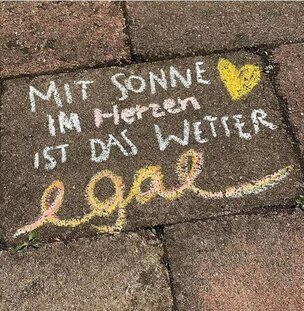 MIT SONNE
IM Herzen
IST DAS WETTER
egal